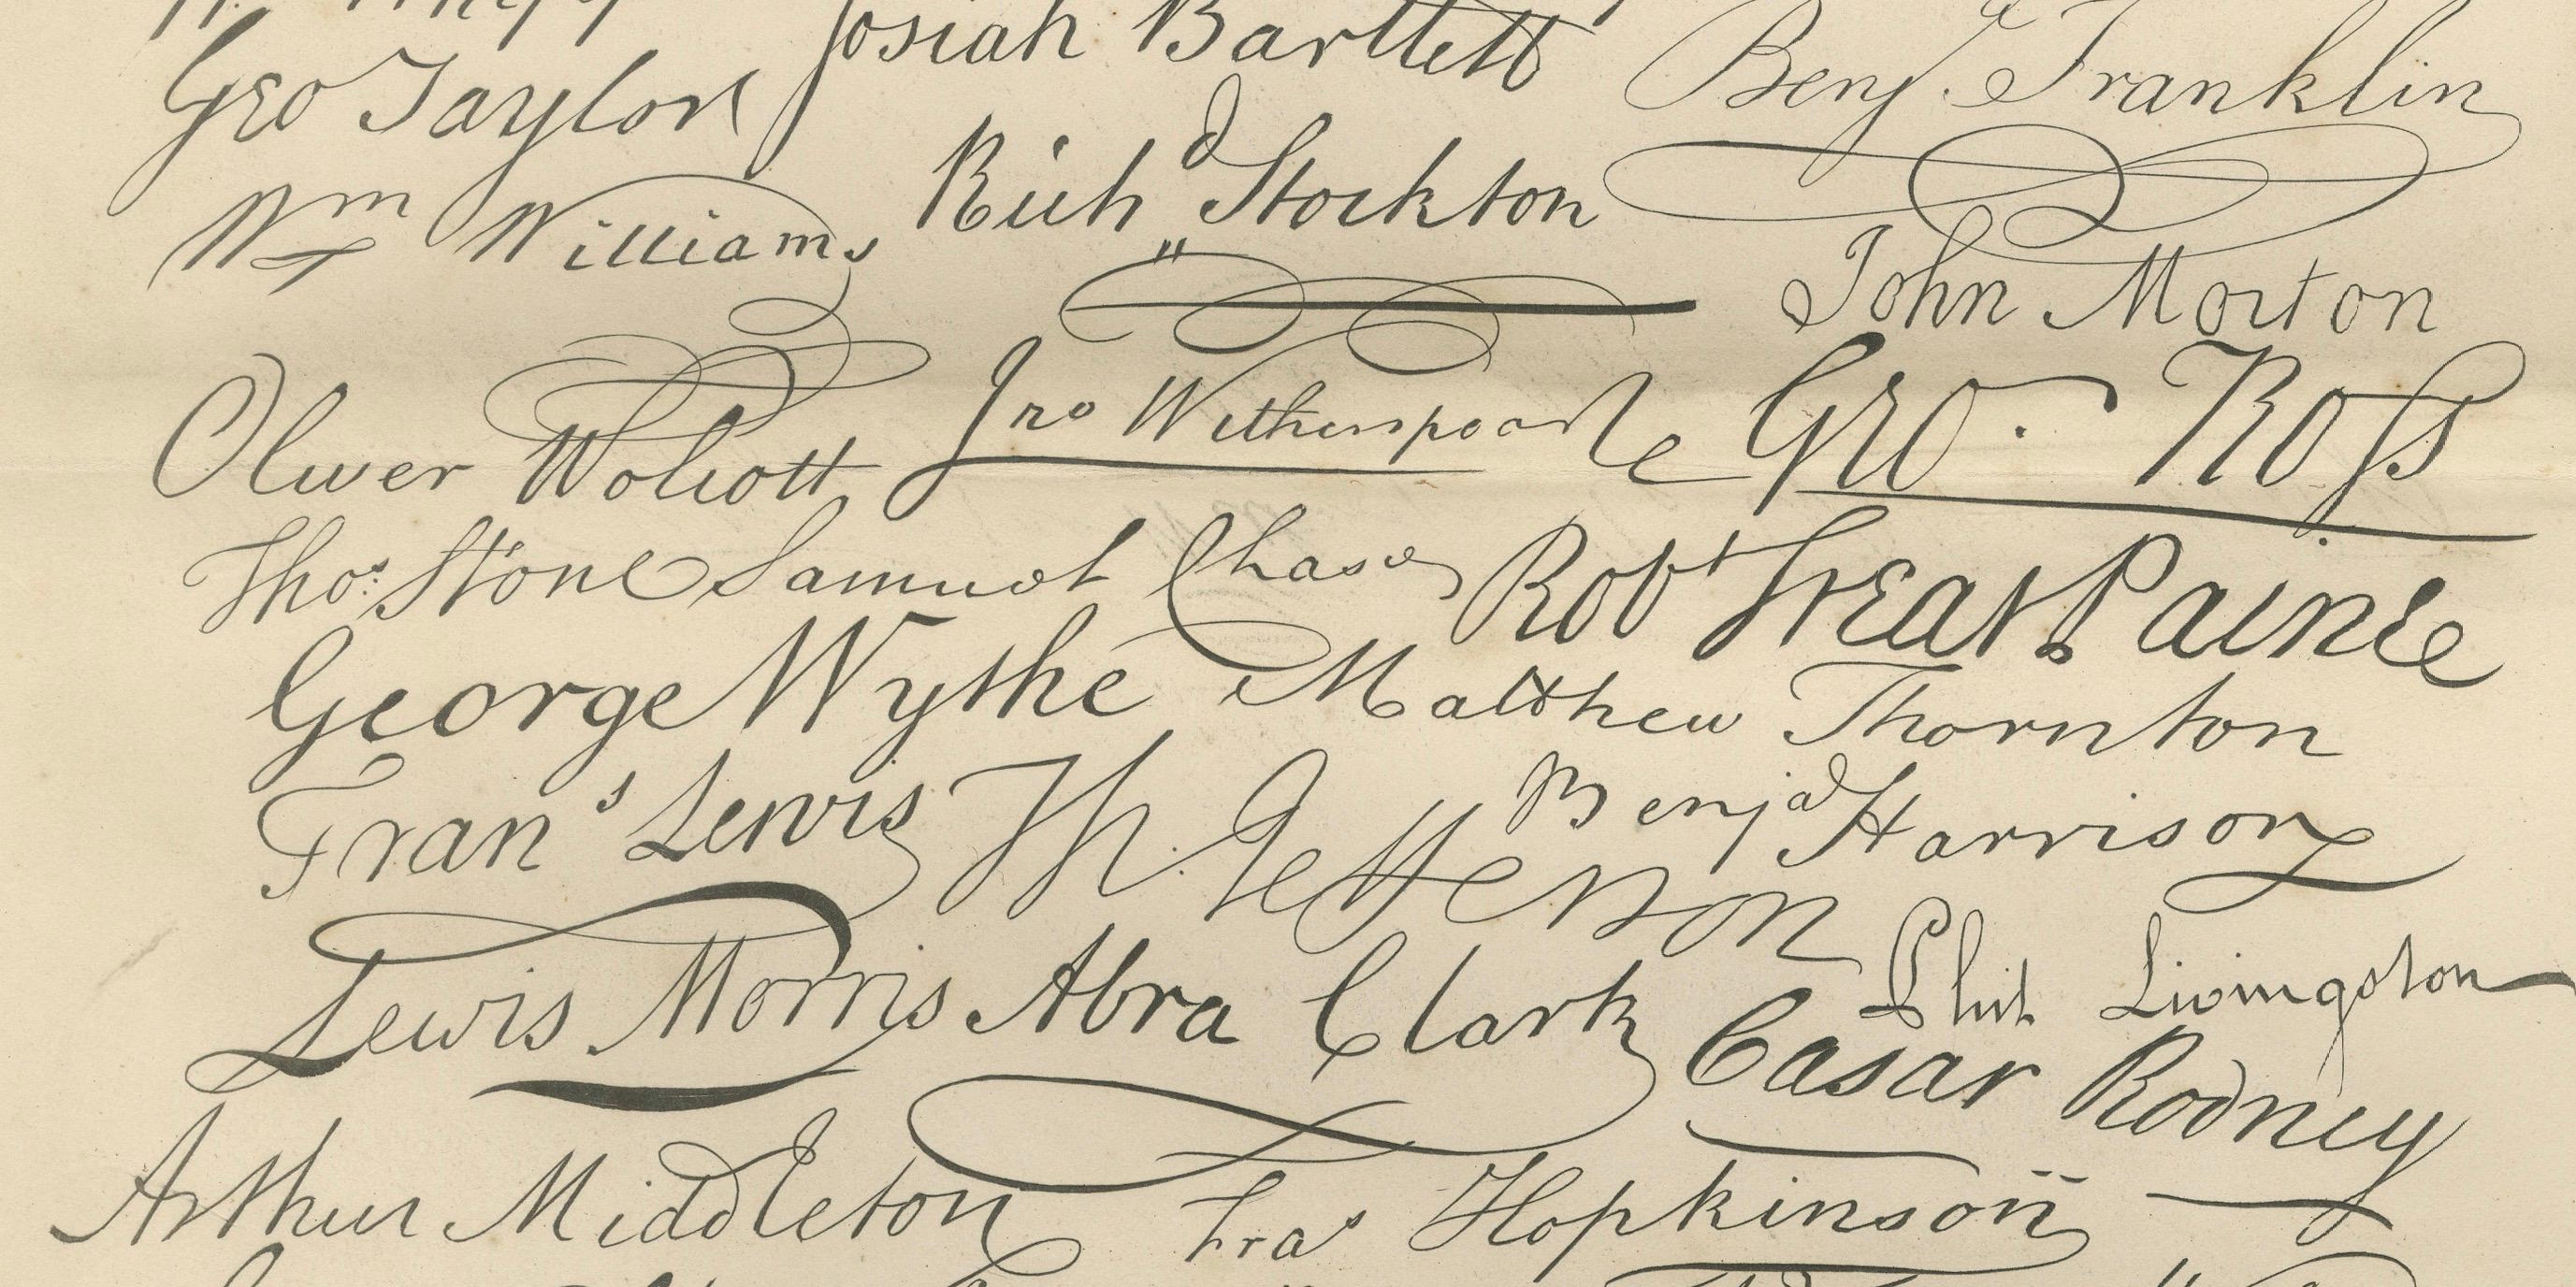 Josiah Bartlett
Geo Taylor
Benj. Franklin
Richd Stockton
Wm Williams
John Morton
Oliver Wolcott
Jno Witherspoon
Geo. Ross
Thos. Stone Samuel Chase Robt Treat Paine
George Wythe Matthew Thornton
Frans Lewis Th. Jefferson Benja Harrison
Lewis Morris Abra Clark Phil. Livingston
Casar Rodney
Arthur Middleton Fras Hopkinson